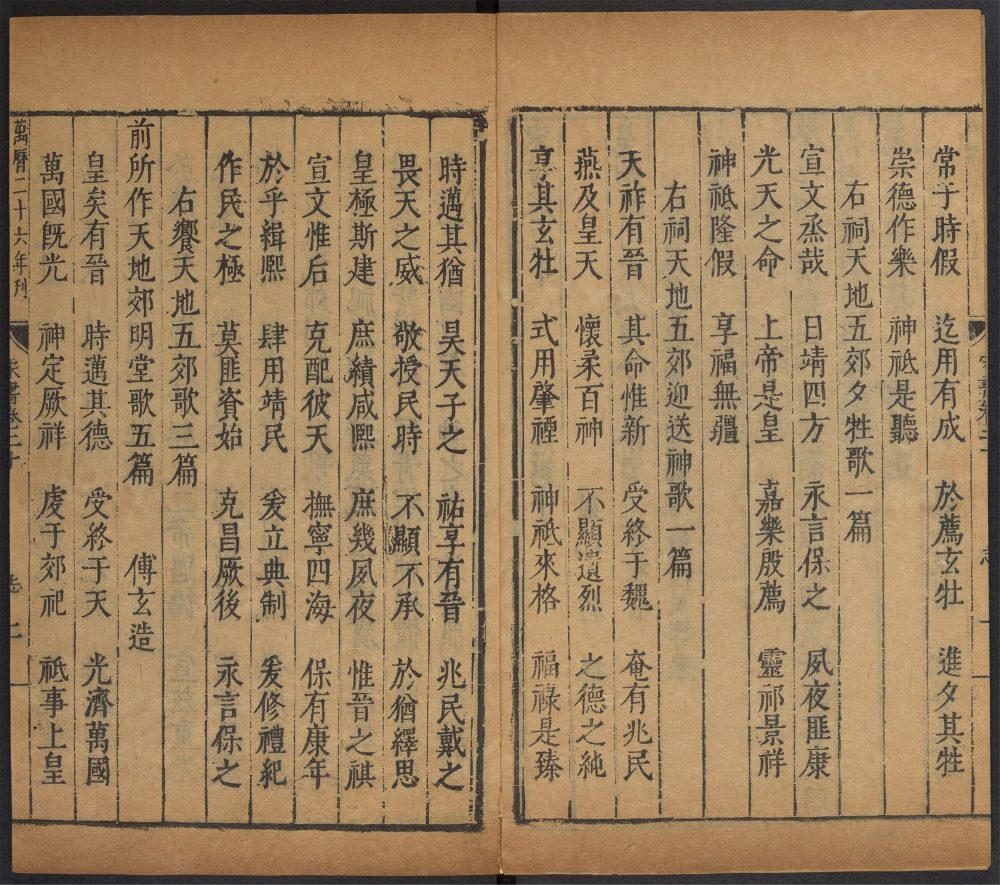 常于時假 迄用有成 於薦玄牡 進夕其牲
崇德作樂 神祗是聽
右祠天地五郊夕牲歌一篇
宣文烝哉 日靖四方 永言保之 夙夜匪康
光天之命 上帝是皇 嘉樂殷薦 靈祁景祥
神祗隆假 享福無疆
右祠天地五郊迎送神歌一篇
天祚有晉 其命惟新 受終于魏 奄有兆民
燕及皇天 懷柔百神 不顯遺烈 之德之純
享其玄牡 式用肇禋 神祗來格 福祿是臻
時邁其猶 昊天子之 祐享有晉 兆民戴之
畏天之威 敬授民時 不顯不承 於猶繹思
皇極斯建 庶績咸熙 庶幾夙夜 惟晉之祺
宣文惟后 克配彼天 撫寧四海 保有康年
於乎緝熙 肆用靖民 爰立典制 爰修禮紀
作民之極 莫匪資始 克昌厥後 永言保之
右饗天地五郊歌三篇
前所作天地郊明堂歌五篇 傅玄造
皇矣有晉 時邁其德 受終于天 光濟萬國
萬國旣光 神定厥祥 虔于郊祀 祗事上皇
萬曆二十六年刊 宋書卷二十 志 二